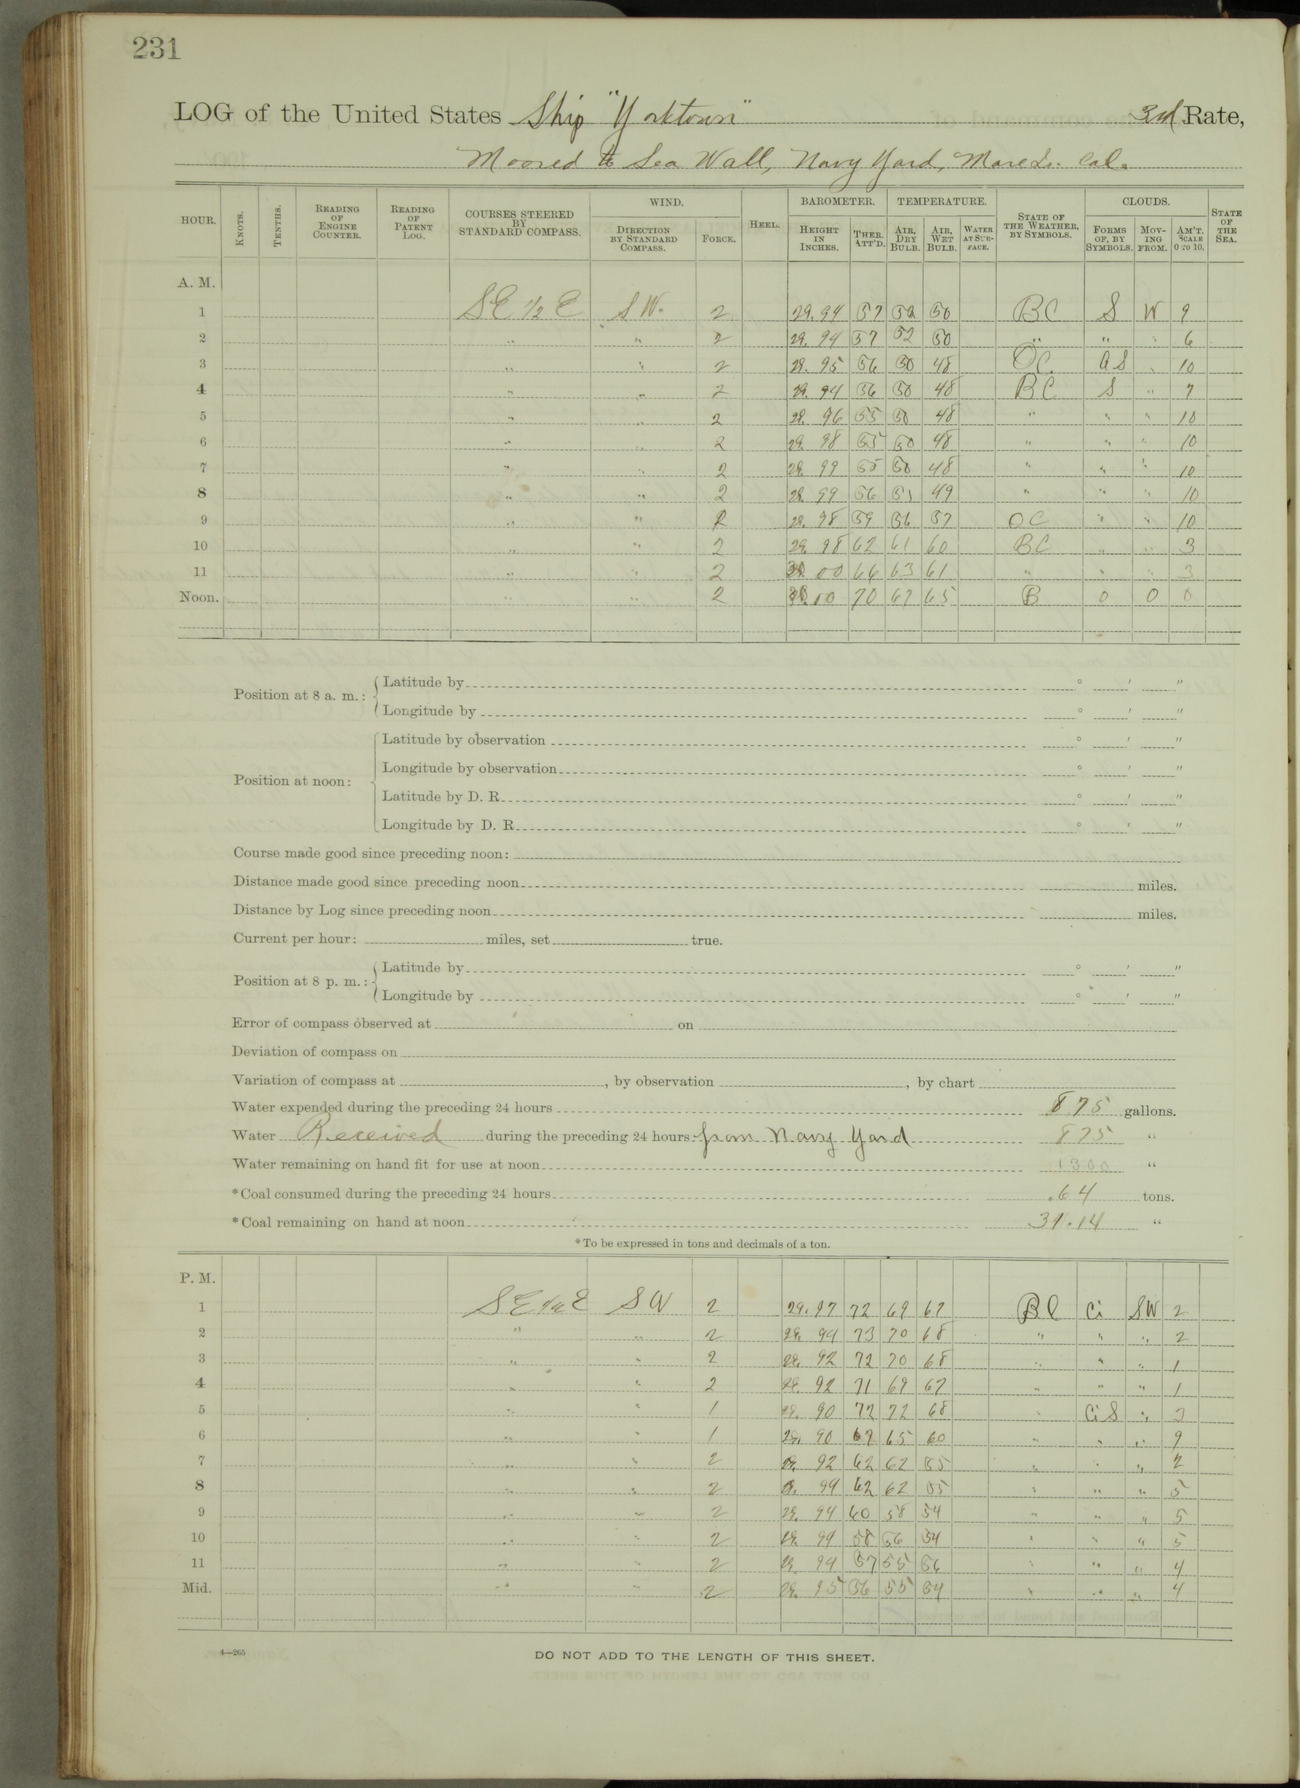 231
LOG of the United States Ship "Yorktown" 3rd Rate,
Moored to Sea Wall, Navy Yard, Mare Is. Cal.
HOUR. KNOTS. TENTHS. READING OF ENGINE COUNTER. READING OF PATENT LOG. COURSES STEERED BY STANDARD COMPASS. WIND. DIRECTION BY STANDARD COMPASS. FORCE. HEEL. BAROMETER. HEIGHT IN INCHES. THER. ATT'D. TEMPERATURE. AIR, DRY BULB. AIR, WET BULB. WATER AT SURFACE. STATE OF THE WEATHER, BY SYMBOLS. CLOUDS. FORMS OF, BY SYMBOLS. MOVING FROM. AM'T. SCALE 0 TO 10. STATE OF THE SEA.
A. M.
1 SE 1/2 E SW. 2 29.94 57 52 50 BC S W 9
2 " " 2 29.94 57 52 50 " " " 6
3 " " 2 29.95 56 50 48 OC aS " 10
4 " " 2 29.94 56 50 48 BC S " 7
5 " " 2 29.96 55 50 48 " " " 10
6 " " 2 29.98 55 50 48 " " " 10
7 " " 2 29.99 55 50 48 " " " 10
8 " " 2 29.99 56 51 49 " " " 10
9 " " 2 29.98 59 56 57 OC " " 10
10 " " 2 29.98 62 61 60 BC " " 3
11 " " 2 30.00 66 63 61 " " " 3
Noon. " " 2 70 67 65 B 0 0 0
Position at 8 a. m.: Latitude by ° ' "
Longitude by ° ' "
Position at noon: Latitude by observation ° ' "
Longitude by observation ° ' "
Latitude by D. R. ° ' "
Longitude by D. R. ° ' "
Course made good since preceding noon:
Distance made good since preceding noon miles.
Distance by Log since preceding noon miles.
Current per hour: miles, set true.
Position at 8 p. m.: Latitude by ° ' "
Longitude by ° ' "
Error of compass observed at on
Deviation of compass on
Variation of compass at , by observation , by chart
Water expended during the preceding 24 hours 875 gallons.
Water Received during the preceding 24 hours from Navy Yard 875 "
Water remaining on hand fit for use at noon 1300 "
*Coal consumed during the preceding 24 hours .64 tons.
*Coal remaining on hand at noon "
*To be expressed in tons and decimals of a ton.
P. M.
1 SE 1/2 E SW 2 29.97 72 69 67 BC Ci SW 2
2 " " 2 29.94 73 70 68 " " " 2
3 " " 2 29.92 72 70 68 " " " 1
4 " " 2 29.92 71 69 67 " " " 1
5 " " 1 29.90 72 72 68 " CiS "
6 " " 1 29.90 65 60 " " " 9
7 " " 2 29.92 62 62 55 " " " 2
8 " " 2 62 62 55 " " " 5
9 " " 2 29.94 60 58 54 " " " 5
10 " " 2 29.94 58 56 54 " " " 5
11 " " 2 29.94 57 55 " " " 4
Mid. " " 2 29.95 56 55 54 " " " 4
4—265
DO NOT ADD TO THE LENGTH OF THIS SHEET.